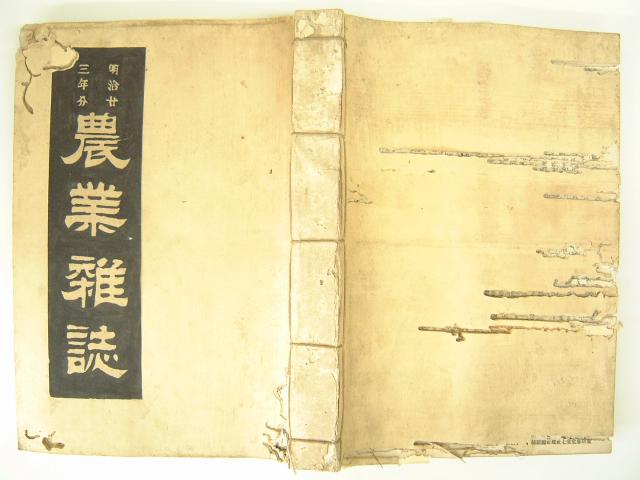 明治廿
三年分
農業雜誌